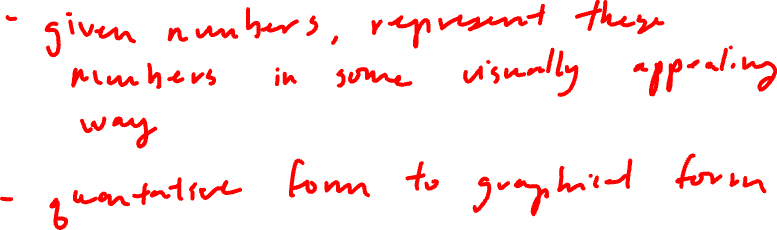 - given numbers, represent these
numbers in some visually appealing
way
- quantative form to graphical form